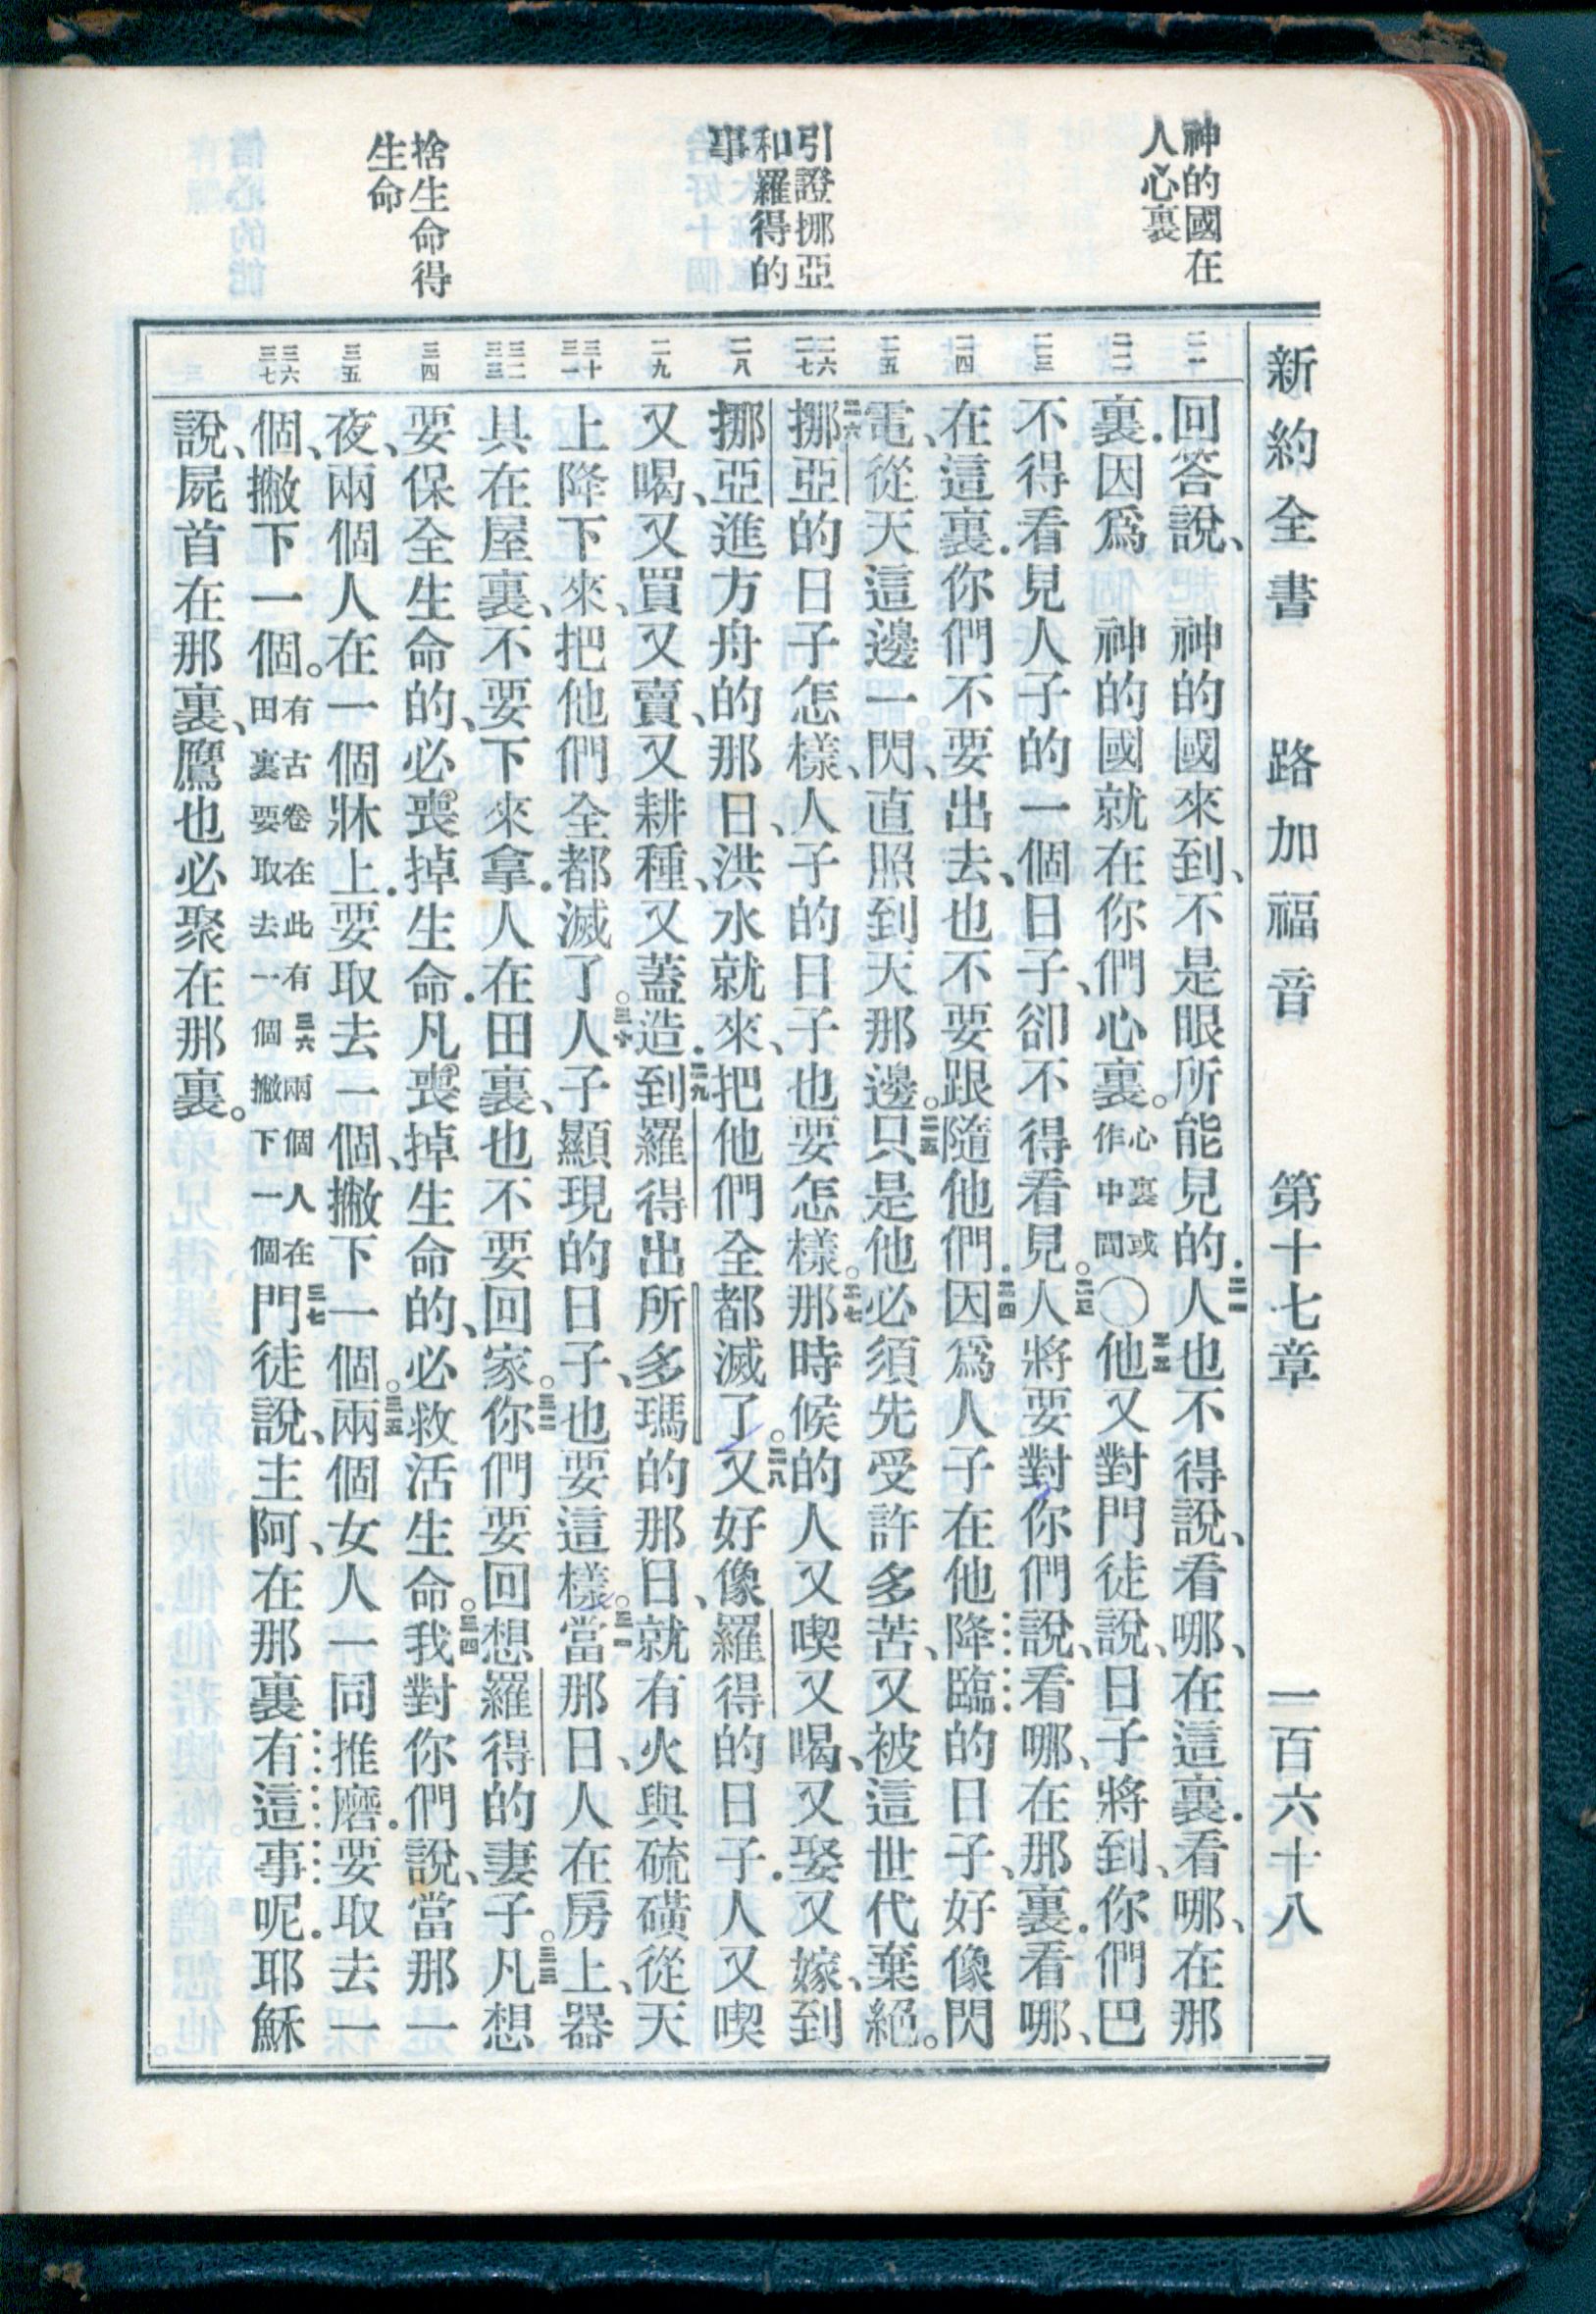 新約全書　路加福音　第十七章　一百六十八
神的國在
人心裏
引證挪亞
和羅得的
事
捨生命得
生命
二一
二二
二三
二四
二五
二六
二七
二八
二九
三十
三一
三二
三三
三四
三五
三六
三七
回答說、　神的國來到、不是眼所能見的．二一人也不得說、看哪、在這裏．看哪、在那
裏．因爲　神的國就在你們心裏。心裏或作中間〇二二他又對門徒說、日子將到、你們巴
不得看見人子的一個日子、卻不得看見。二三人將要對你們說、看哪、在那裏．看哪、
在這裏．你們不要出去、也不要跟隨他們．二四因爲人子在他降臨的日子、好像閃
電、從天這邊一閃、直照到天那邊。二五只是他必須先受許多苦、又被這世代棄絕。
二六挪亞的日子怎樣、人子的日子也要怎樣。二七那時候的人又喫又喝、又娶又嫁、到
挪亞進方舟的那日、洪水就來、把他們全都滅了。二八又好像羅得的日子．人又喫
又喝、又買又賣、又耕種、又蓋造．二九到羅得出所多瑪的那日、就有火與硫磺從天
上降下來、把他們全都滅了。三十人子顯現的日子、也要這樣。三一當那日、人在房上、器
具在屋裏、不要下來拿．人在田裏、也不要回家。三二你們要回想羅得的妻子。三三凡想
要保全生命的、必喪掉生命．凡喪掉生命的、必救活生命。三四我對你們說、當那一
夜、兩個人在一個牀上．要取去一個、撇下一個。三五兩個女人一同推磨．要取去一
個、撇下一個。有古卷在此有。三六兩個人在田裏要取去一個撇下一個三七門徒說、主阿、在那裏有這事呢．耶穌
說、屍首在那裏、鷹也必聚在那裏。